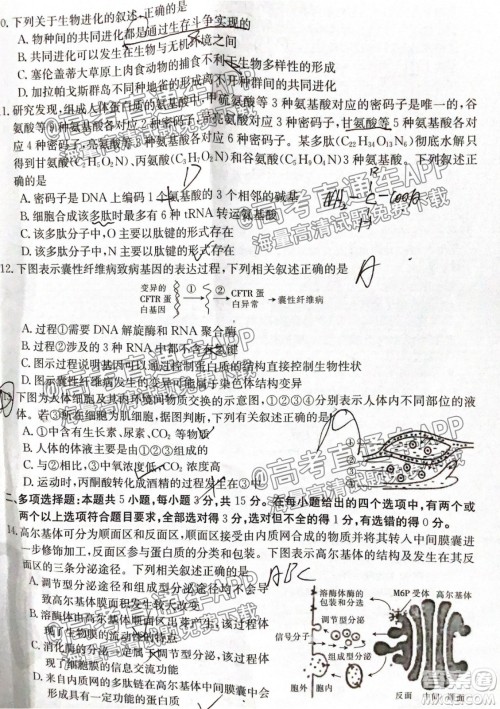 0. 下列关于生物进化的叙述,正确的是
A. 物种间的共同进化都是通过生存斗争实现的
B. 共同进化可以发生在生物与无机环境之间
C. 塞伦盖蒂大草原上肉食动物的捕食不利于生物多样性的形成
D. 加拉帕戈斯群岛不同种地雀的形成离不开种群间的共同进化
11. 研究发现,组成人体蛋白质的氨基酸中,甲硫氨酸等 3 种氨基酸对应的密码子是唯一的,谷
氨酸等 9 种氨基酸各对应 2 种密码子,异亮氨酸等 2 种氨基酸各对应 3 种密码子,甘氨酸等 5 种氨基酸各对
应 4 种密码子,亮氨酸等 3 种氨基酸各对应 6 种密码子。某多肽(C₂₂H₃₄O₁₃N₆)彻底水解只
得到甘氨酸(C₂H₅O₂N)、丙氨酸(C₃H₇O₂N)和谷氨酸(C₅H₉O₄N)3 种氨基酸。下列叙述正
确的是
A. 密码子是 DNA 上编码 1 个氨基酸的 3 个相邻的碱基
B. 细胞合成该多肽时最多有 6 种 tRNA 转运氨基酸
C. 该多肽分子中,O 主要以肽键的形式存在
D. 该多肽分子中,N 主要以肽键的形式存在
D
12. 下图表示囊性纤维病致病基因的表达过程,下列相关叙述正确的是
A
变异的
CFTR 蛋
白基因
①
②
CFTR 蛋
白异常
囊性纤维病
A. 过程①需要 DNA 解旋酶和 RNA 聚合酶
B. 过程②涉及的 3 种 RNA 中都不含有氢键
C. 图示过程说明基因可以通过控制蛋白质的结构直接控制生物性状
D. 图示囊性纤维病发生的变异可能属于染色体结构变异
下图为人体细胞及其内环境间物质交换的示意图,①②③④分别表示人体内不同部位的液
体。若③所在的细胞为肌细胞,据图判断,下列有关叙述正确的是
A. ②中含有生长素、尿素、CO₂ 等物质
B. 人体的内环境是由①②③④组成的
C. 与②处相比,①处的 CO₂ 浓度更高
D. 运动时,丙酮酸转化成酒精的过程发生在③中
二、多项选择题:本题共 5 小题,每小题 3 分,共 15 分。在每小题给出的四个选项中,有两个或
两个以上选项符合题目要求,全部选对得 3 分,选对但不全的得 1 分,有选错的得 0 分。
14. 高尔基体可分为顺面区和反面区,顺面区接受由内质网合成的物质并将其转入中间膜囊进
一步修饰加工,反面区参与蛋白质的分类和包装。下图表示高尔基体的结构及发生在其反
面区的三条分泌途径。下列叙述正确的是
ABC
A. 调节型分泌途径和组成型分泌途径均不会导
致高尔基体膜面积发生较大改变
B. 溶酶体从高尔基体顺面区出芽产生,该过程体
现了生物膜的流动性的特点
C. 消化酶的分泌一定是调节型分泌,该过程体
现了细胞膜的信息交流功能
D. 来自内质网的多肽链在高尔基体中间膜囊中会
形成具有一定功能的蛋白质
溶酶体酶的
包装和分选
M6P 受体
高尔基体
调节型分泌
信号分子
组成型分泌
胞外
胞内
反面
中间
顺面
@高考直通车APP
海量高清试题免费下载